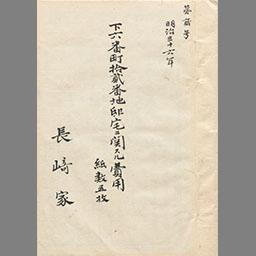 第貳号
明治三十六年
下六番町拾貳番地邸宅ニ関スル費用
紙数五枚
長崎家